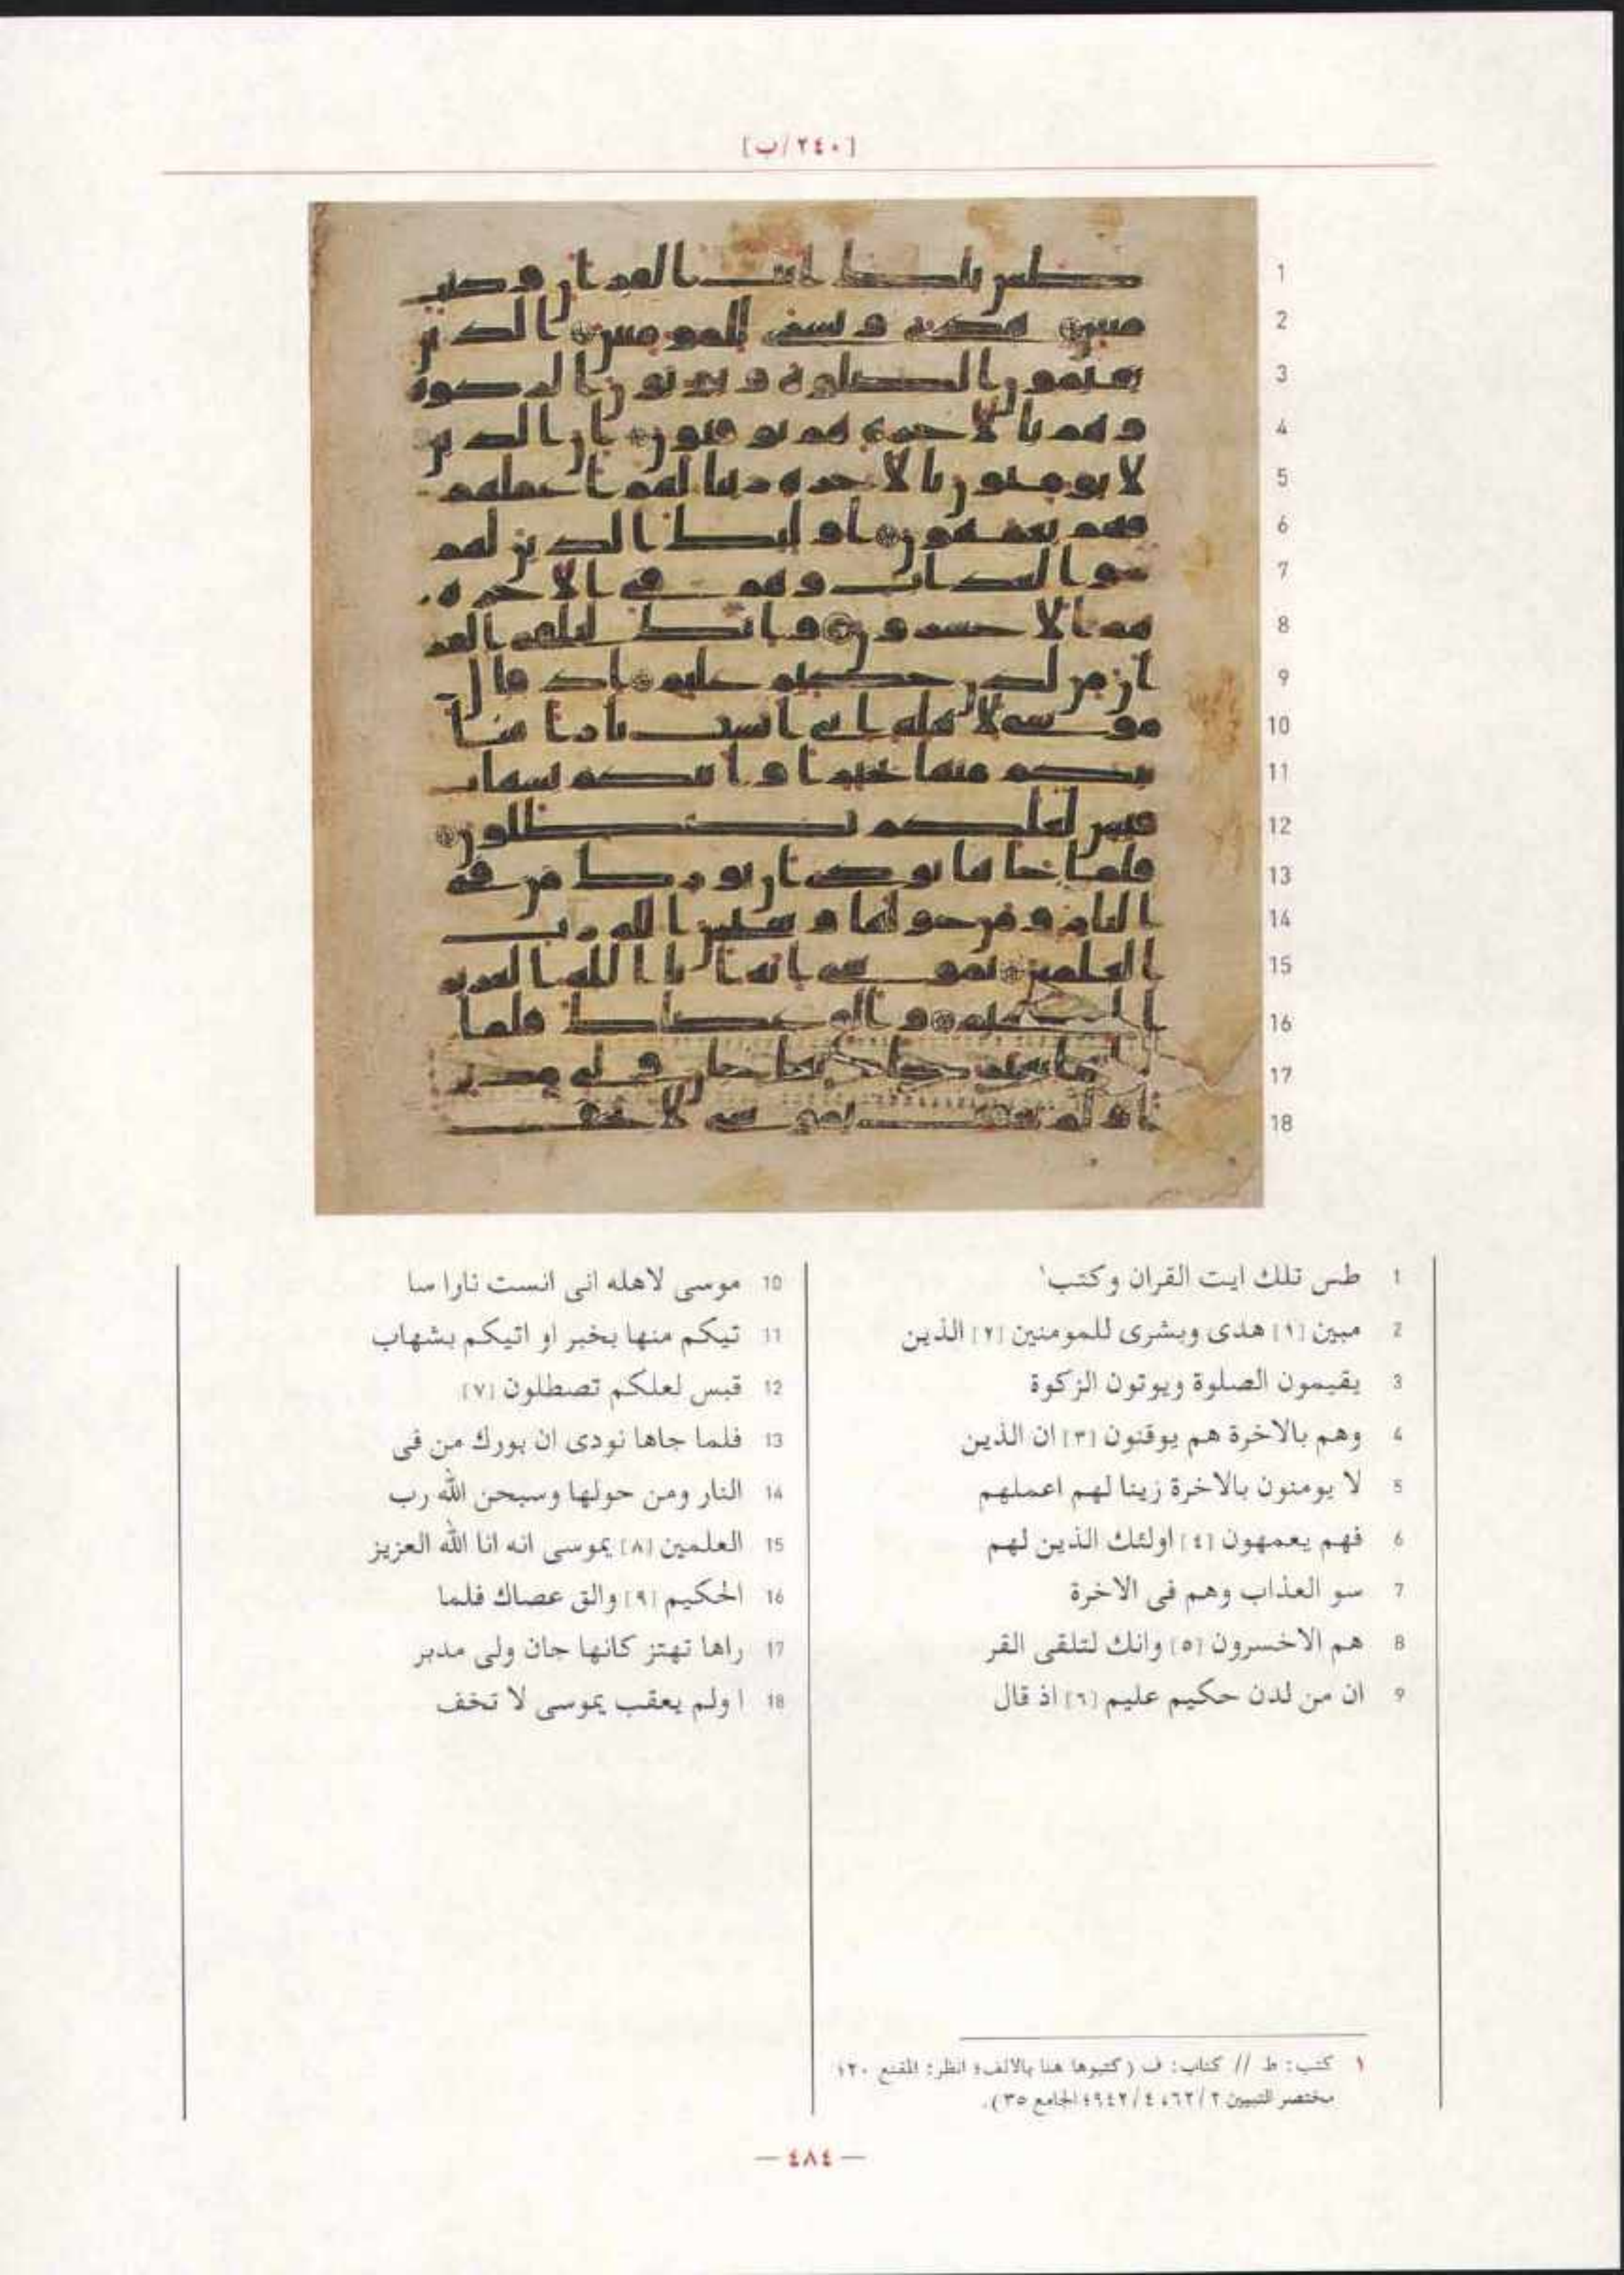 [٢٤٠/ب]
1 طس تلك ايت القران وكتب١
2 مبين [١] هدى وبشرى للمومنين [٢] الذين
3 يقيمون الصلوة ويوتون الزكوة
4 وهم بالاخرة هم يوقنون [٣] ان الذين
5 لا يومنون بالاخرة زينا لهم اعملهم
6 فهم يعمهون [٤] اولئك الذين لهم
7 سو العذاب وهم فى الاخرة
8 هم الاخسرون [٥] وانك لتلقى القر
9 ان من لدن حكيم عليم [٦] اذ قال
10 موسى لاهله انى انست نارا سا
11 تيكم منها بخبر او اتيكم بشهاب
12 قبس لعلكم تصطلون [٧]
13 فلما جاها نودى ان بورك من فى
14 النار ومن حولها وسبحن الله رب
15 العلمين [٨] يموسى انه انا الله العزيز
16 الحكيم [٩] والق عصاك فلما
17 راها تهتز كانها جان ولى مدبر
18 ا ولم يعقب يموسى لا تخف
١ كتب: ط // كتاب: ف (كتبوها هنا بالالف؛ انظر: المقنع ٢٠؛
مختصر التبيين ٢/٦٢، ٤/٩٤٢؛ الجامع ٣٥).
— ٤٨٤ —